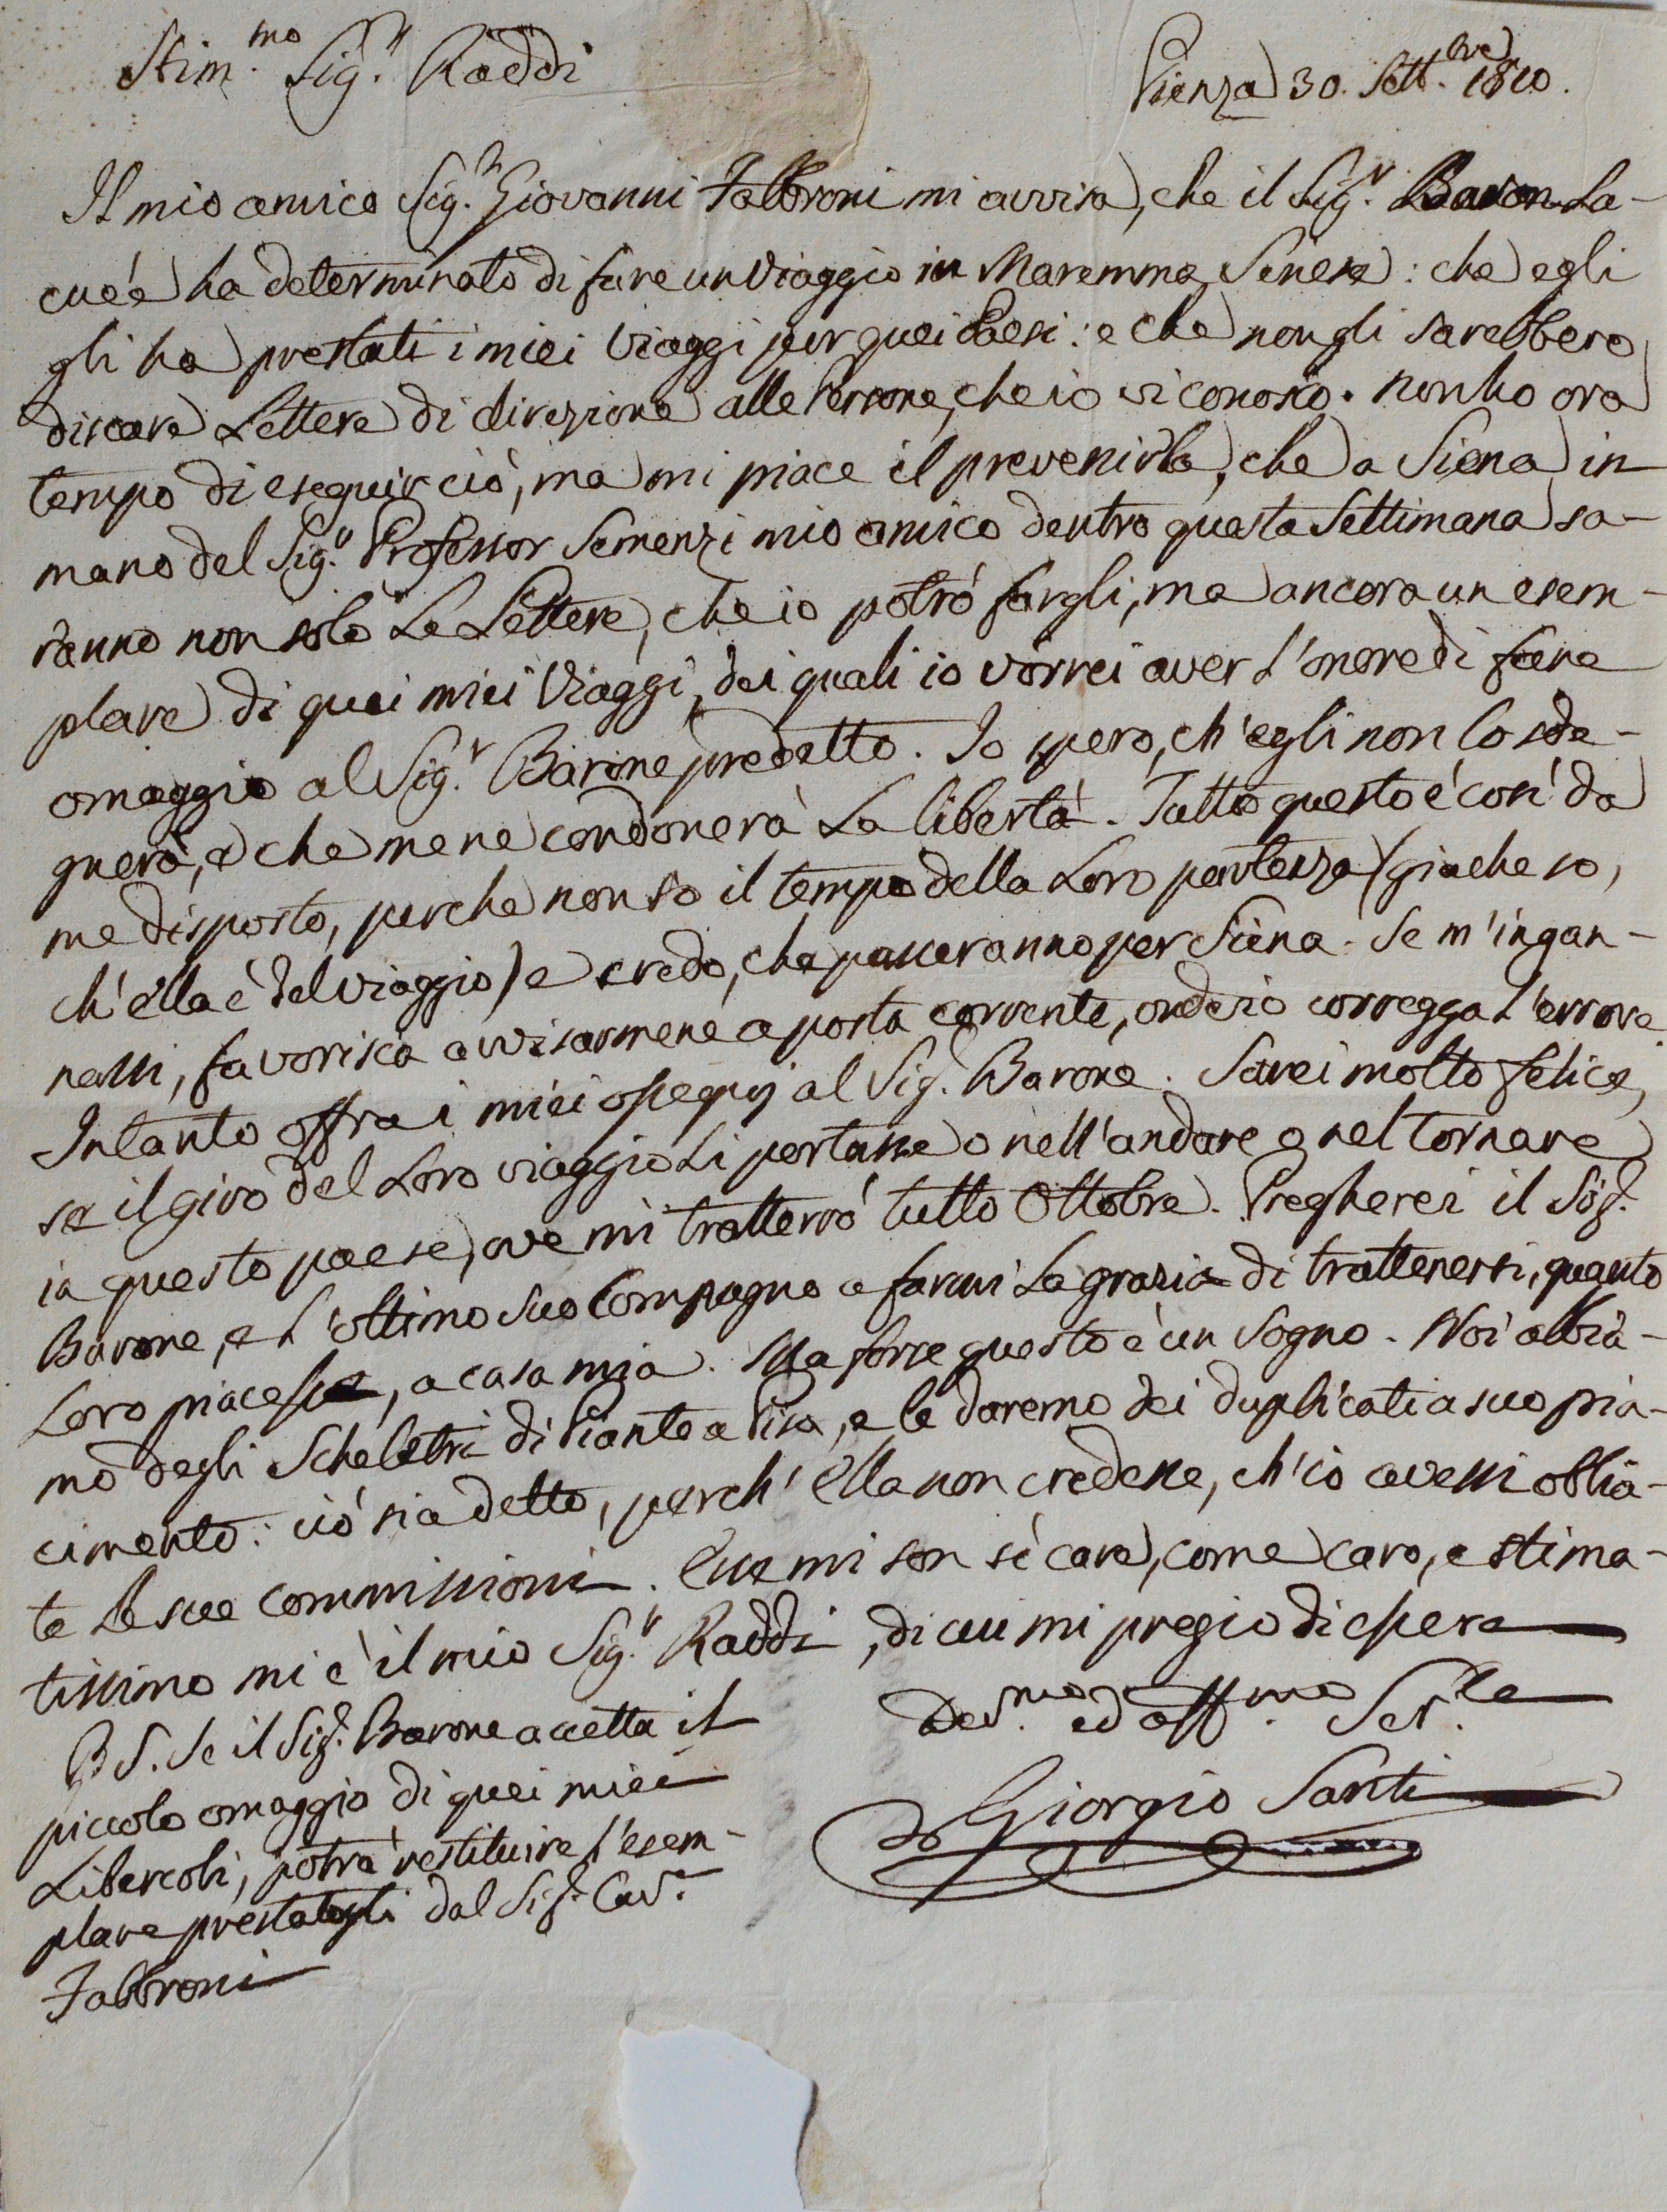 Stim.mo Sig.r Raddi
Pienza 30. Sett.bre 1810.
Il mio amico Sig.r Giovanni Fabbroni mi avvisa, che il Sig.r Baron La-
cuèe ha determinato di fare un viaggio in Maremma Senese: che egli
gli ha prestati i miei Viaggi per quei Paesi: e che non gli sarebbero
discare Lettere di direzione alle Persone, che io vi conosco. Non ho ora
tempo di eseguir ciò, ma mi piace il prevenirla, che a Siena in
mano del Sig.r Professor Semenzi mio amico dentro questa Settimana sa-
ranno non solo Le Lettere, che io potrò fargli, ma ancora un esem-
plare di quei miei Viaggi, dei quali io vorrei aver l'onore di fare
omaggio al Sig.r Barone predetto. Io spero, ch'egli non lo sde-
gnerà, e che me ne condonerà La libertà. Tutto questo è così da
me disposto, perche non so il tempo della Loro partenza (giache so,
ch'ella è del viaggio) e credo, che passeranno per Siena. Se m'ingan-
nassi, favorisca avvisarmene a posta corrente, ond'io corregga l'errore.
Intanto offra i miei ossequj al Sig.r Barone. Sarei molto felice,
se il giro del Loro viaggio Li portasse o nell'andare o nel tornare
in questo paese, ove mi tratterrò tutto Ottobre. Pregherei il Sig.r
Barone, e L'ottimo suo Compagno a farmi La grazia di trattenersi, quanto
Loro piacesse, a casa mia. Ma forse questo è un Sogno. Noi abbia-
mo degli Scheletri di Piante a Pisa, e le daremo dei duplicati a suo pia-
cimento: ciò sia detto, perch'Ella non credesse, ch'io avessi oblia-
te Le sue commissioni. Esse mi son sì care, come caro, e stima-
tissimo mi è il mio Sig.r Raddi, di cui mi pregio di essere
Dev.mo ed aff.mo Ser.le
Giorgio Santi
P.S. Se il Sig.r Barone accetta il
piccolo omaggio di quei miei
Libercoli, potrà restituire l'esem-
plare prestatogli dal Sig.r Cav.r
Fabbroni